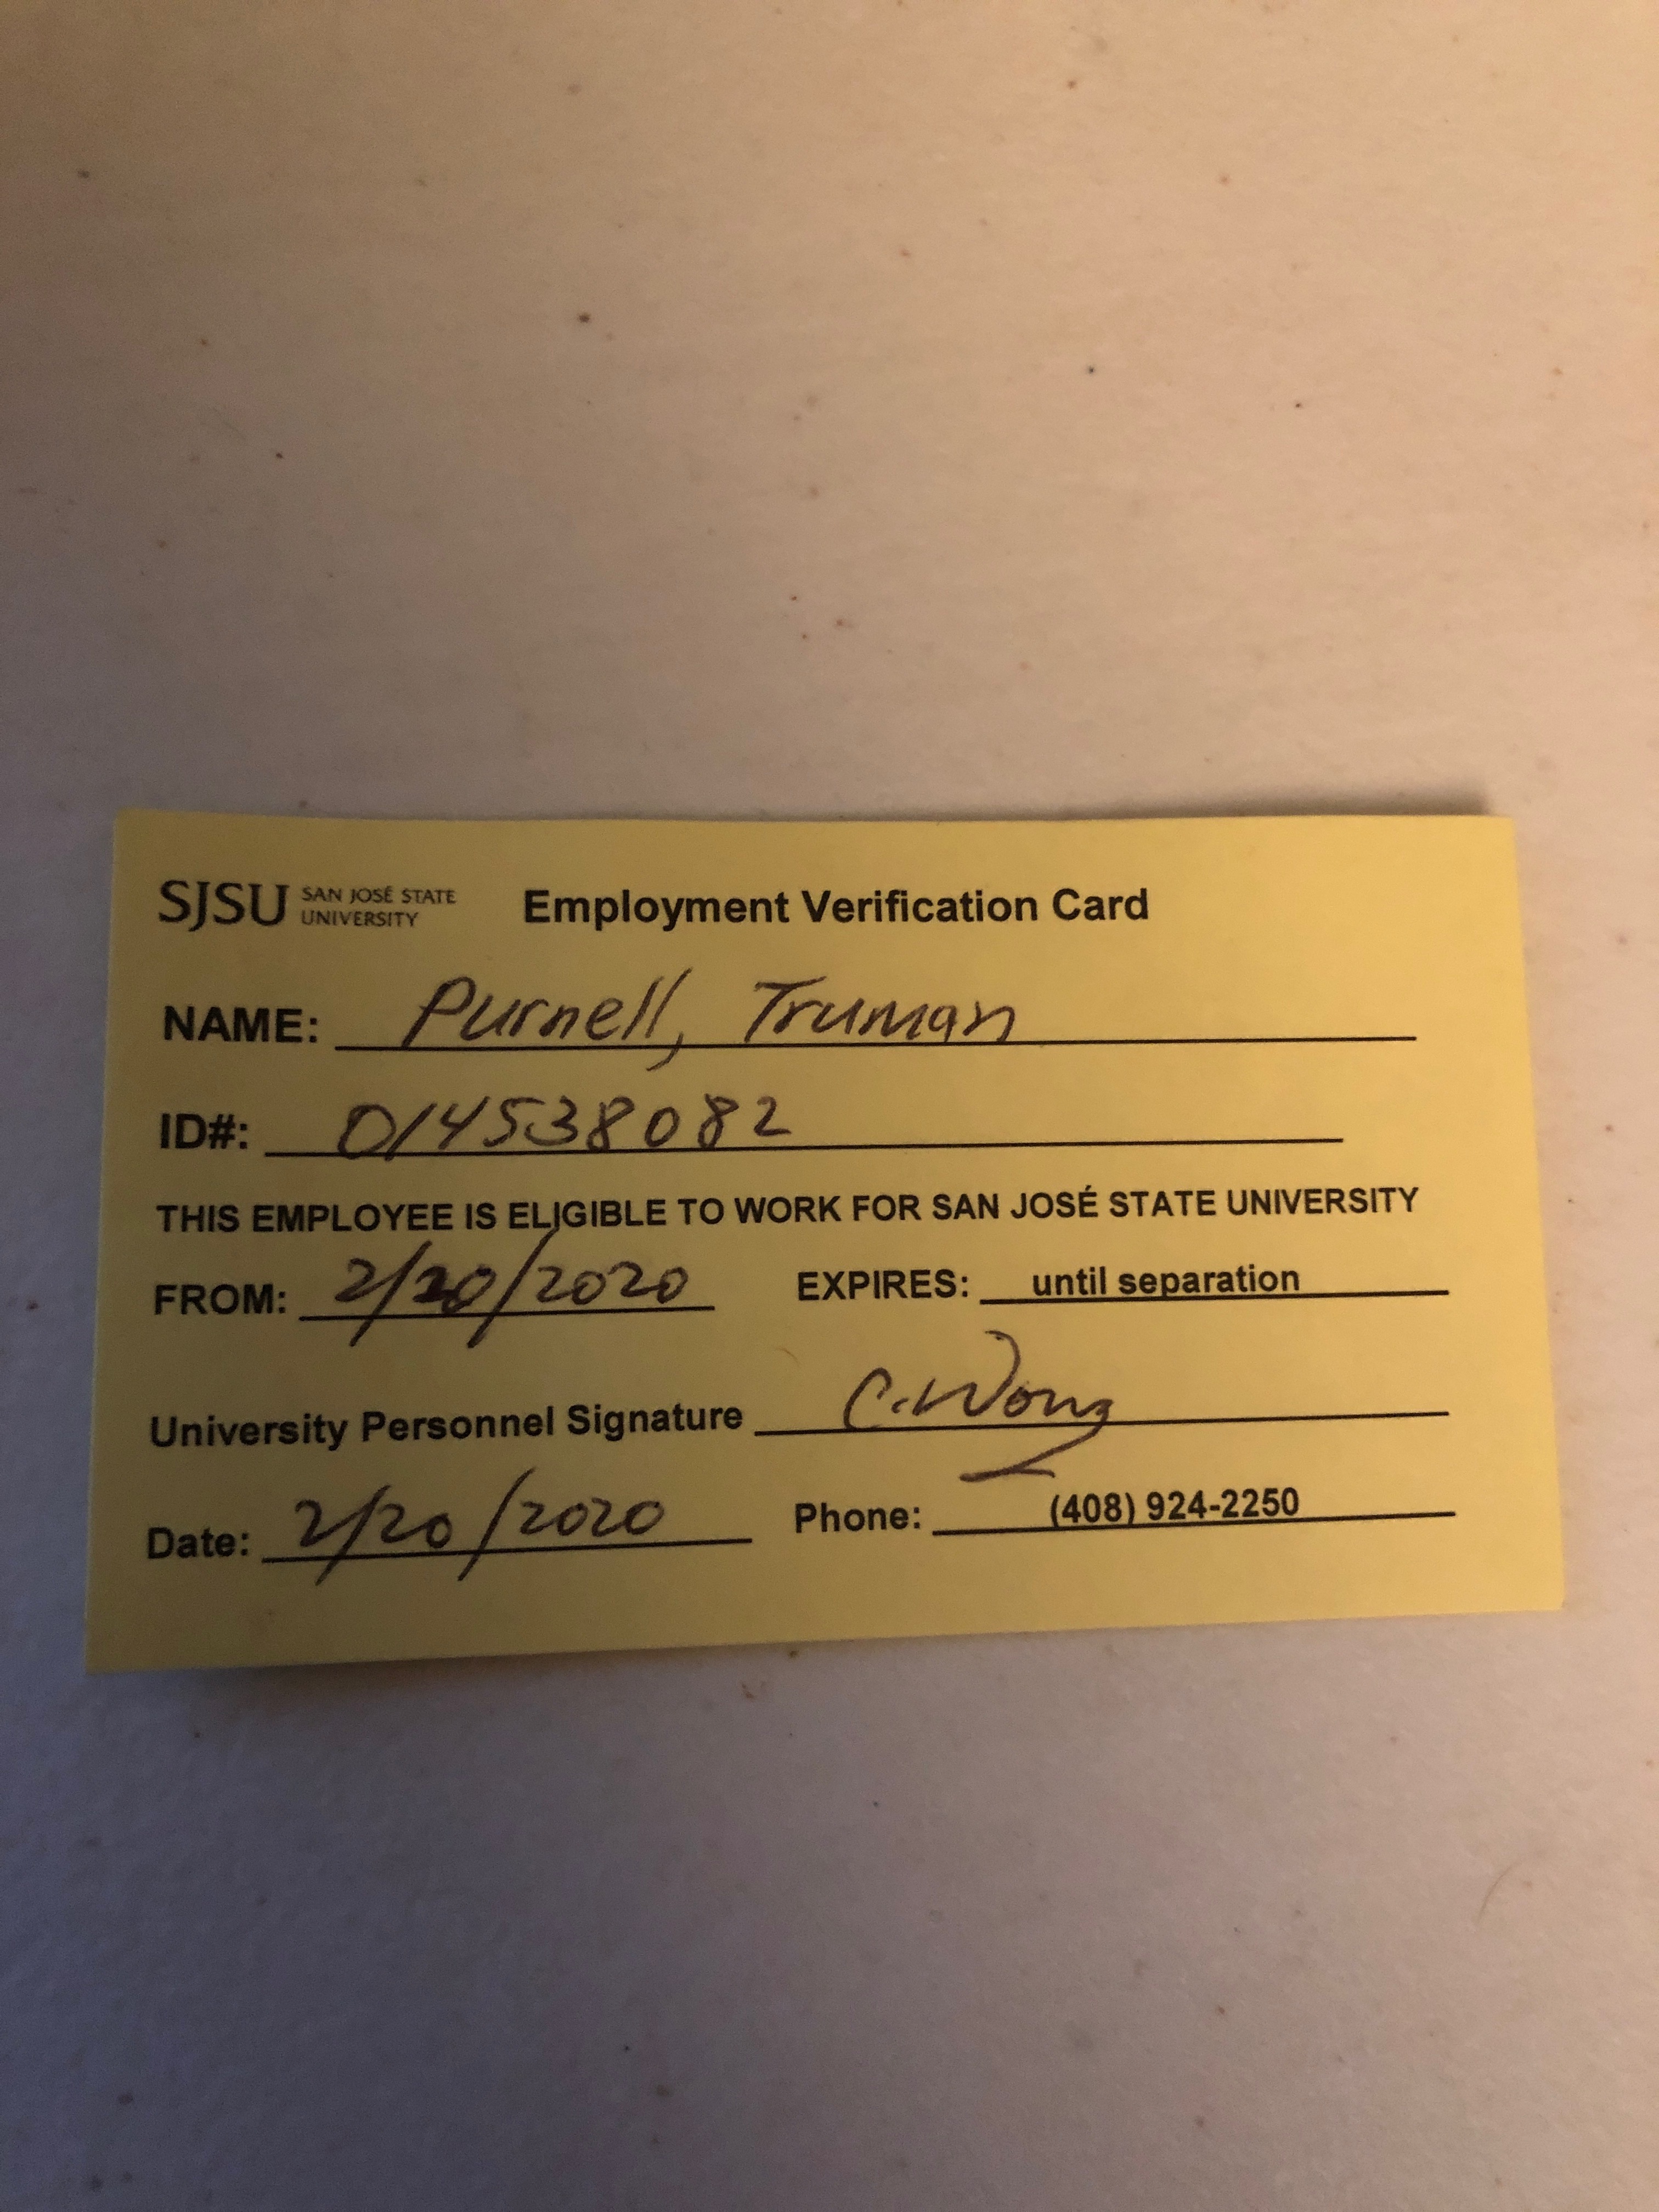 SJSU SAN JOSÉ STATE UNIVERSITY Employment Verification Card
NAME: Purnell, Truman
ID#: 014538082
THIS EMPLOYEE IS ELIGIBLE TO WORK FOR SAN JOSÉ STATE UNIVERSITY
FROM: 2/20/2020 EXPIRES: until separation
University Personnel Signature C. Wong
Date: 2/20/2020 Phone: (408) 924-2250